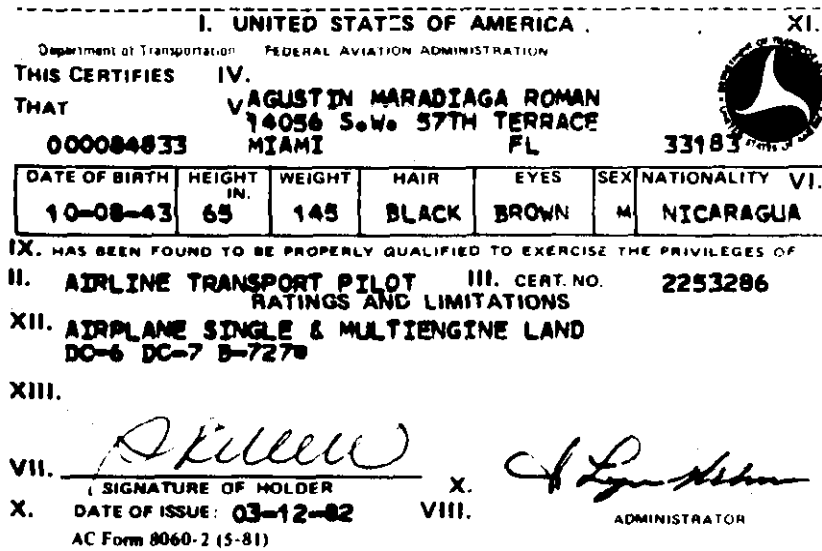 I. UNITED STATES OF AMERICA. XI.
Department of Transportation FEDERAL AVIATION ADMINISTRATION
THIS CERTIFIES IV.
THAT V. AGUSTIN MARADIAGA ROMAN
14056 S.W. 57TH TERRACE
000084833 MIAMI FL 33183
DATE OF BIRTH HEIGHT IN. WEIGHT HAIR EYES SEX NATIONALITY VI.
10-08-43 65 145 BLACK BROWN M NICARAGUA
IX. HAS BEEN FOUND TO BE PROPERLY QUALIFIED TO EXERCISE THE PRIVILEGES OF
II. AIRLINE TRANSPORT PILOT III. CERT. NO. 2253286
RATINGS AND LIMITATIONS
XII. AIRPLANE SINGLE & MULTIENGINE LAND
DC-6 DC-7 B-727
XIII.
VII. SIGNATURE OF HOLDER X.
X. DATE OF ISSUE: 03-12-82 VIII. ADMINISTRATOR
AC Form 8060-2 (5-81)